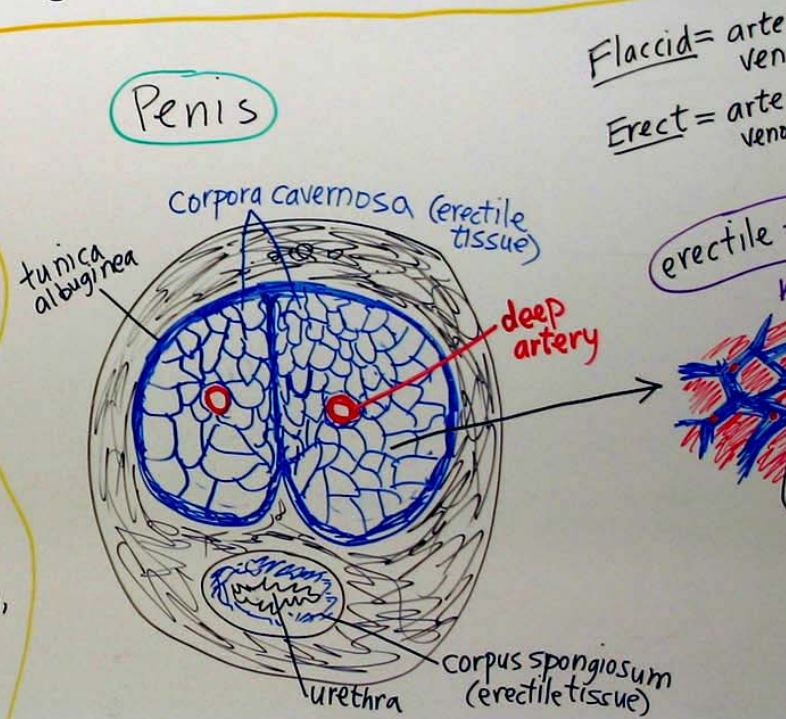 Penis
Flaccid = arte
ven
Erect = arte
veno
corpora cavernosa (erectile
tissue)
tunica
albuginea
erectile
deep
artery
corpus spongiosum
(erectile tissue)
urethra